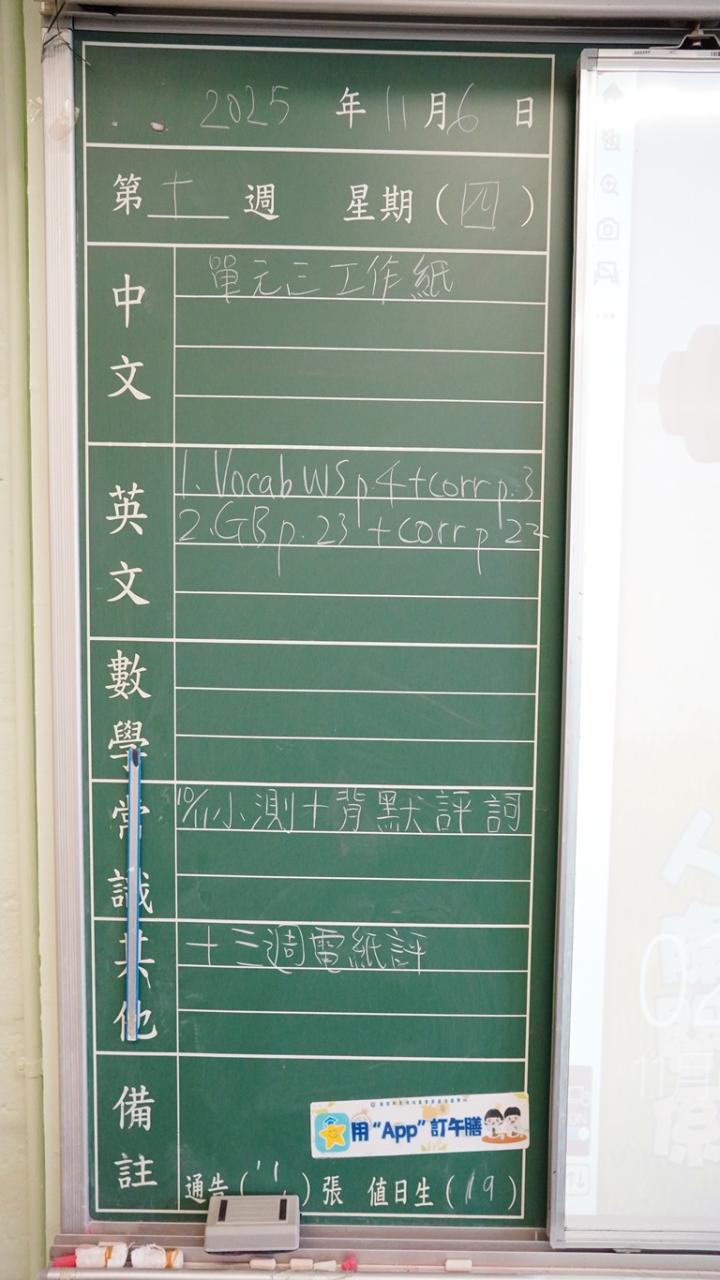 2025 年 11 月 6 日
第 十 週 星期 ( 四 )
中文
單元三工作紙
英文
1. Vocab WS p.4 + corr p.3
2. GB p.23 + corr p 22
數學
常識
10/11 小測 + 背默評詞
其他
十三週電紙評
備註
用“App”訂午膳
通告 ( ) 張 值日生 ( 19 )